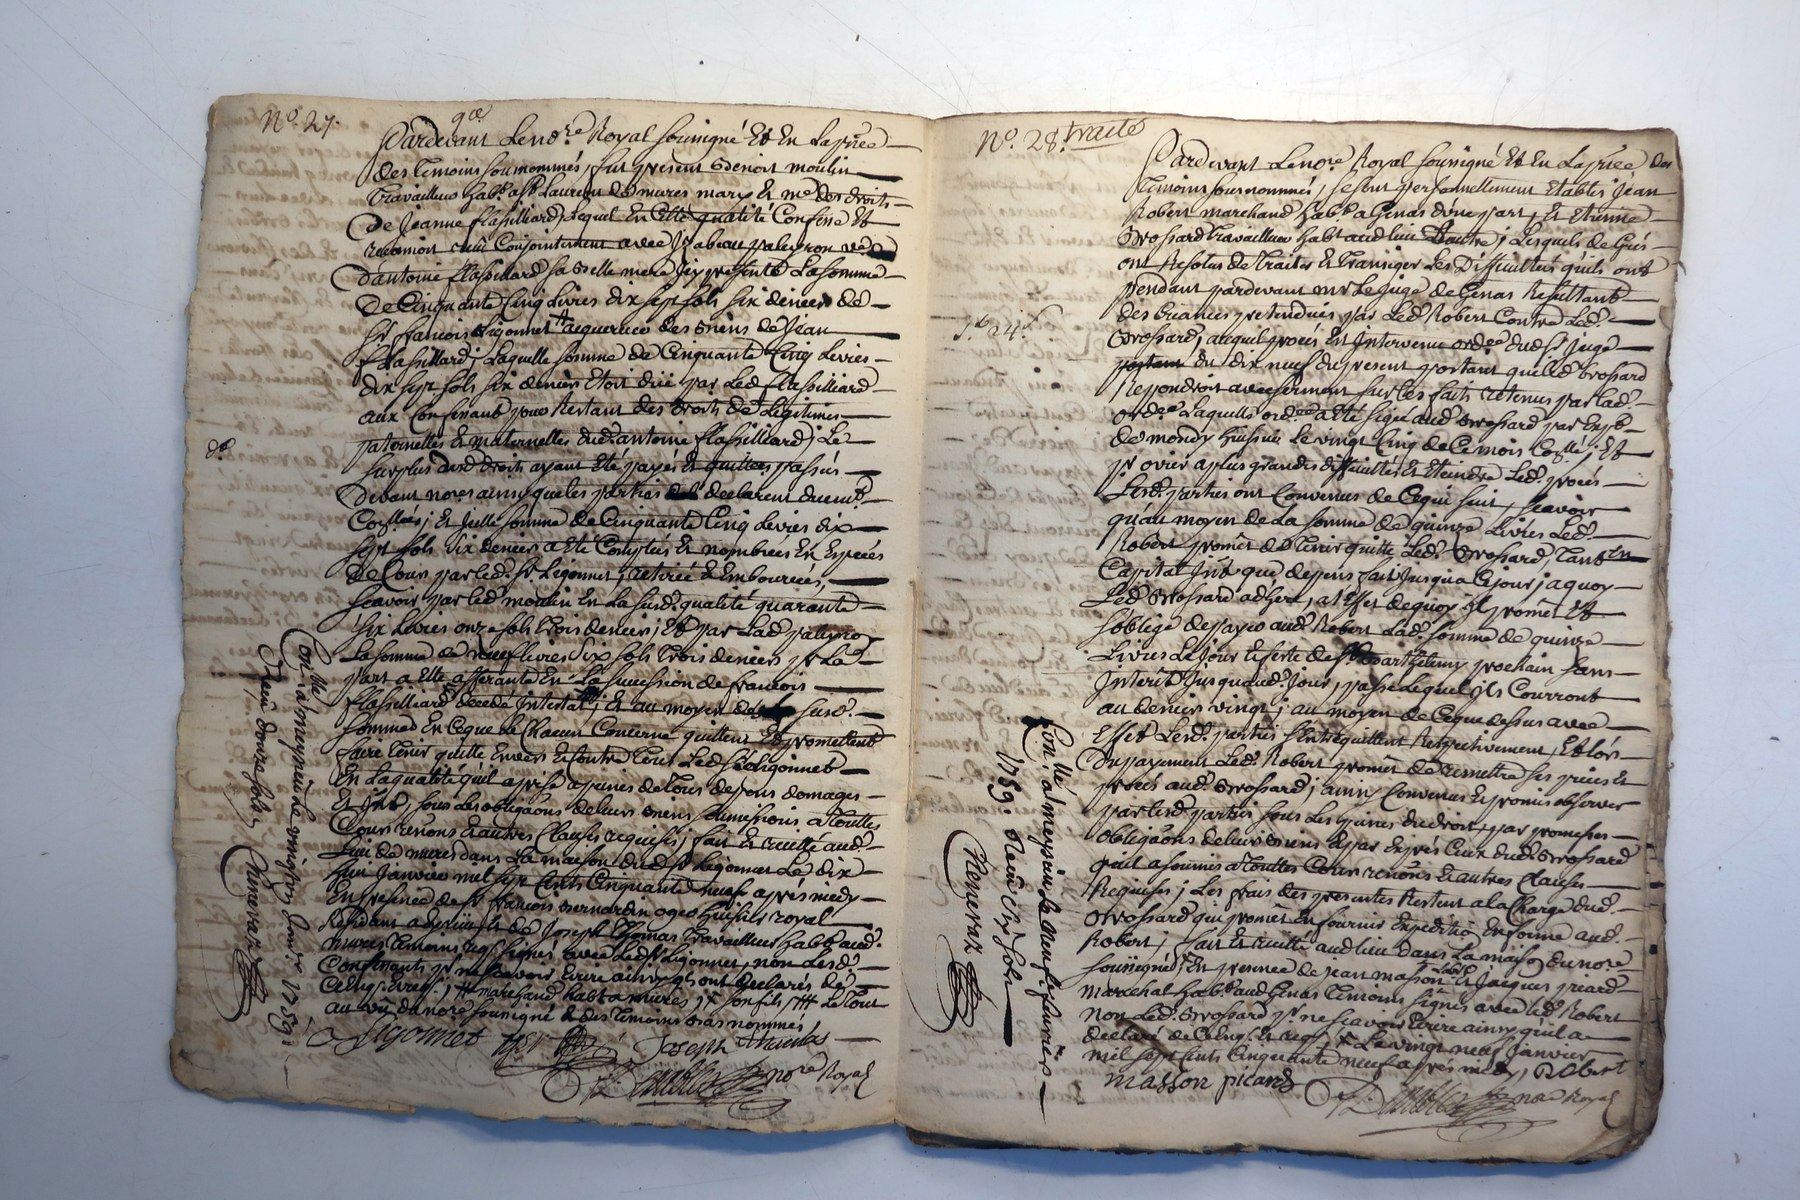 No. 27. qce
Pardevant Le nore Royal soussigné Et En La pñce
des Temoins sousnommés, fut present Benoit moulin
Travailleur habt a St Laurent de mures mary Et me des droits
De Jeanne flassilliard, Lequel En Cette qualité Confesse Et
avoir reçu Conjointement avec Izabeau paleyron veve
D'antoine flassilliard sa Belle mere Icy presente La somme
De Cinquante Cinq Livres dix sept sols six deniers de
Sr françois Ligonnet ⚹ acquereur des Biens de Jean
flassilliard; Laquelle somme de Cinquante Cinq Livres
dix sept sols six deniers Etoit düe par Led. flassilliard
aux Confessants pour Restant des droits de Legitimes
paternelles Et maternelles dud. antoine flassilliard; Le
surplus desd. droits ayant Eté payés Et quittes passés
Devant nores ainsy que les parties declarent
Et Icelle somme de Cinquante Cinq Livres dix
sept sols six deniers a Eté Comptées Et nombrées En Especes
De Cour par led. Sr Ligonnet, retirée & Emboursées,
scavoir par led. moulin En La susd. qualité quarante
six Livres onze sols Trois deniers; Et par Lad. paleyron
La somme de neuf livres six sols Trois deniers pr La
part a Elle afferante En La succession de francois
flassilliard decedé Intestat; Et au moyen des susd.
sommes En Ce que Le Chacun Concerne quittent Et promettent
faire Tenir quitte Envers Et Contre Tous Led. Sr Ligonnet
En La qualité qu'il a prise a peines de Tous depens domages
Et Intts, sous Les obligaons de leurs Biens soumissions a Touttes
Cours renons Et autres Clauses requises; fait Et recitté aud.
Lieu de mures dans La maison dud. Sr Ligonnet Le dix
huit Janvier mil sept Cents Cinquante neuf après midy
En presence de Sr francois Bernardin huissier royal
Residant a Et de Joseph Thomas Travailleur habt aud.
mures Temoins signés avec Led. Sr Ligonnet, non Lesd.
Confessants pr ne scavoir Ecrire ainsy qu'ils ont declarés de
Ce Enquis Et requis, ⚹ marchand habt a mures, son fils Le Tout
au vü du nore soussigné & des Temoins Bas nommés
Ligonnet Joseph Thomas
nore Royal
Conllé a meyzieu Le vingt 1759.
Reçu douze sols
No. 28. traité
Pardevant Le nore Royal soussigné Et En La pñce des
Temoins sousnommés, se sont personnellement Etablis Jean
Robert marchand habt a Genas d'une part, Et Etienne
Brossard Travailleur habt aud. lieu d'autre; Lesquels de Grés
ont Resolus de Traiter & Transiger Les Difficultés qu'ils ont
pendant pardevant mr Le Juge de Genas Resultant
des Creances pretendues par Led. Robert Contre Led.
Brossard, auquel procés Est Intervenue ordce dud. Sr Juge
du dix neuf du present portant que led. Brossard
Repondroit avec serment sur les faits retenus par lad.
ordce Laquelle ordce a Eté signé aud. Brossard par Expt
de mondy huissier Le vingt Cinq de Ce mois Conllé; Et
pr ovier a plus grandes difficultés Et Eteindre Led. procés
Lesd. parties ont Convenües de Ce qui suit, scavoir
qu'au moyen de La somme de quinze Livres Led.
Robert promet de Tenir quitte Led. Brossard, Tant En
Capital Intt que depens fait Jusqu'a Ce jour, a quoy
Led. Brossard adhere, a l'Effet de quoy Il promet Et
s'oblige de payer aud. Robert Lad. somme de quinze
Livres Le Jour & feste de St Barthelemy prochain sans
Interet Jusqu'aud. Jour, passé Lequel ils Courront
au denier vingt; au moyen de Ce que dessus avec
Effet Lesd. parties s'Entrequittent Respectivement, Et lors
Du payement Led. Robert promet de remettre ses pieces &
procés aud. Brossard; ainsy Convenus & promis observer
par lesd. parties sous Les peines du droit, par promesses
obligaons de leurs Biens & par Exprés Ceux dud. Brossard
qu'il a soumis a Touttes Cours renons & autres Clauses
Requises; Les frais des presentes Restent a la Charge dud.
Brossard qui promet En fournir Expeditio En forme aud.
Robert; fait Et recitté aud. lieu dans La maison du nore
soussigné, En presence de jean masson Labr & Jacques picard
marechal habts aud. Genas Temoins signés avec led. Robert
non Led. Brossard pr ne scavoir Ecrire ainsy qu'il a
declaré de Ce Enq. Et req., Le vingt neuf Janvier
mil sept Cents Cinquante neuf après midy, Robert
masson picard
nore Royal
Conllé a meyzieu Le neuf fevrier
1759. Reçu sols